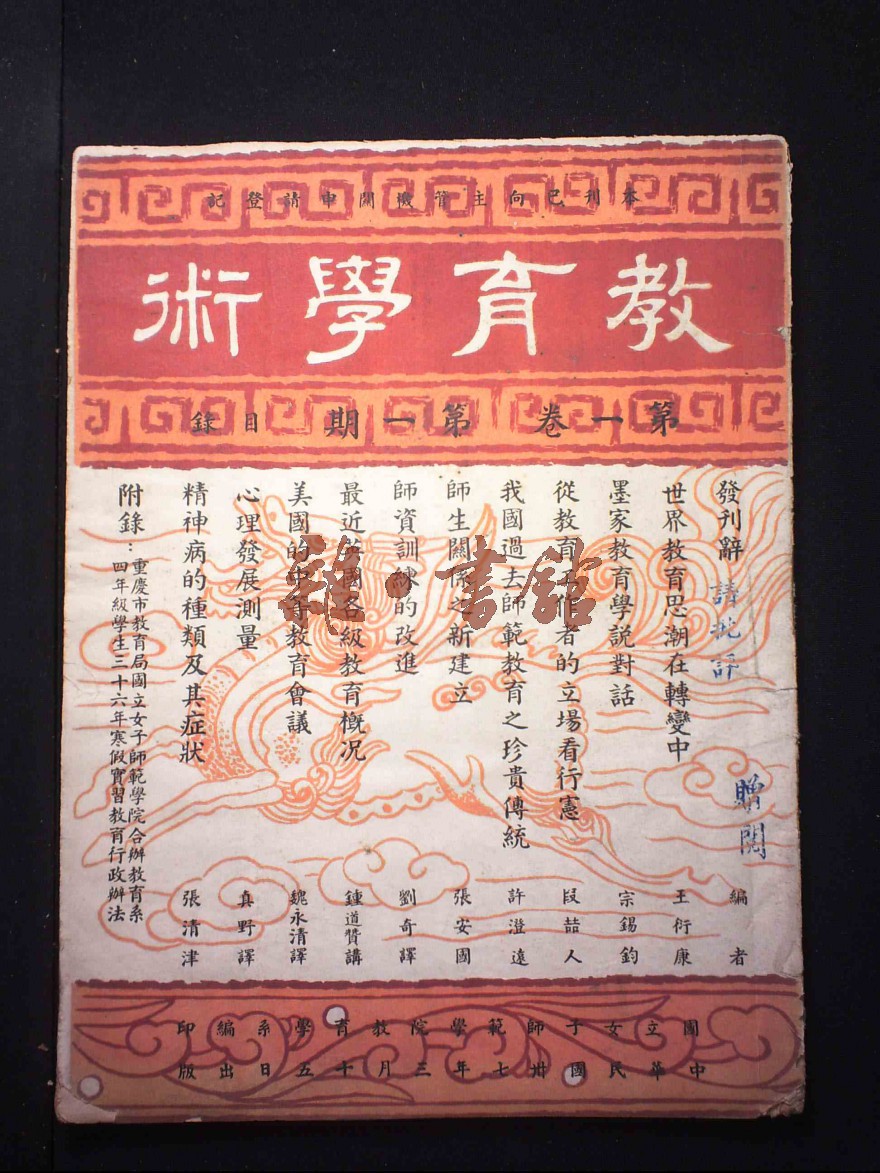 本刊已向主管機關申請登記
教育學術
第一卷 第一期 目錄
發刊辭 編者
請批評
贈閱
世界教育思潮在轉變中 王衍康
墨家教育學說對話 宗錫鈞
從教育工作者的立場看行憲 段喆人
我國過去師範教育之珍貴傳統 許澄遠
師生關係之新建立 張安國
師資訓練的改進 劉奇譯
最近英國各級教育概况 鍾道贊講
美國的中等教育會議 魏永清譯
心理發展測量 真野譯
精神病的種類及其症狀 張清津
附錄：重慶市教育局國立女子師範學院合辦教育系
四年級學生三十六年寒假實習教育行政辦法
雜·書館
國立女子師範學院教育學系編印
中華民國卅七年三月十五日出版